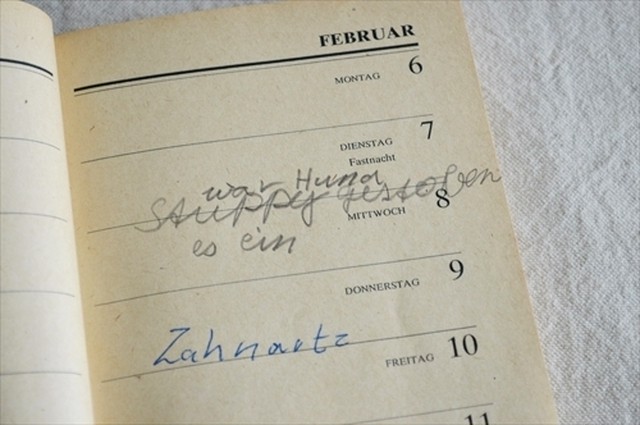 FEBRUAR
MONTAG 6
DIENSTAG 7
Fastnacht
war Hund
Struppy gestoben
MITTWOCH 8
es ein
DONNERSTAG 9
Zahnartz
FREITAG 10
11